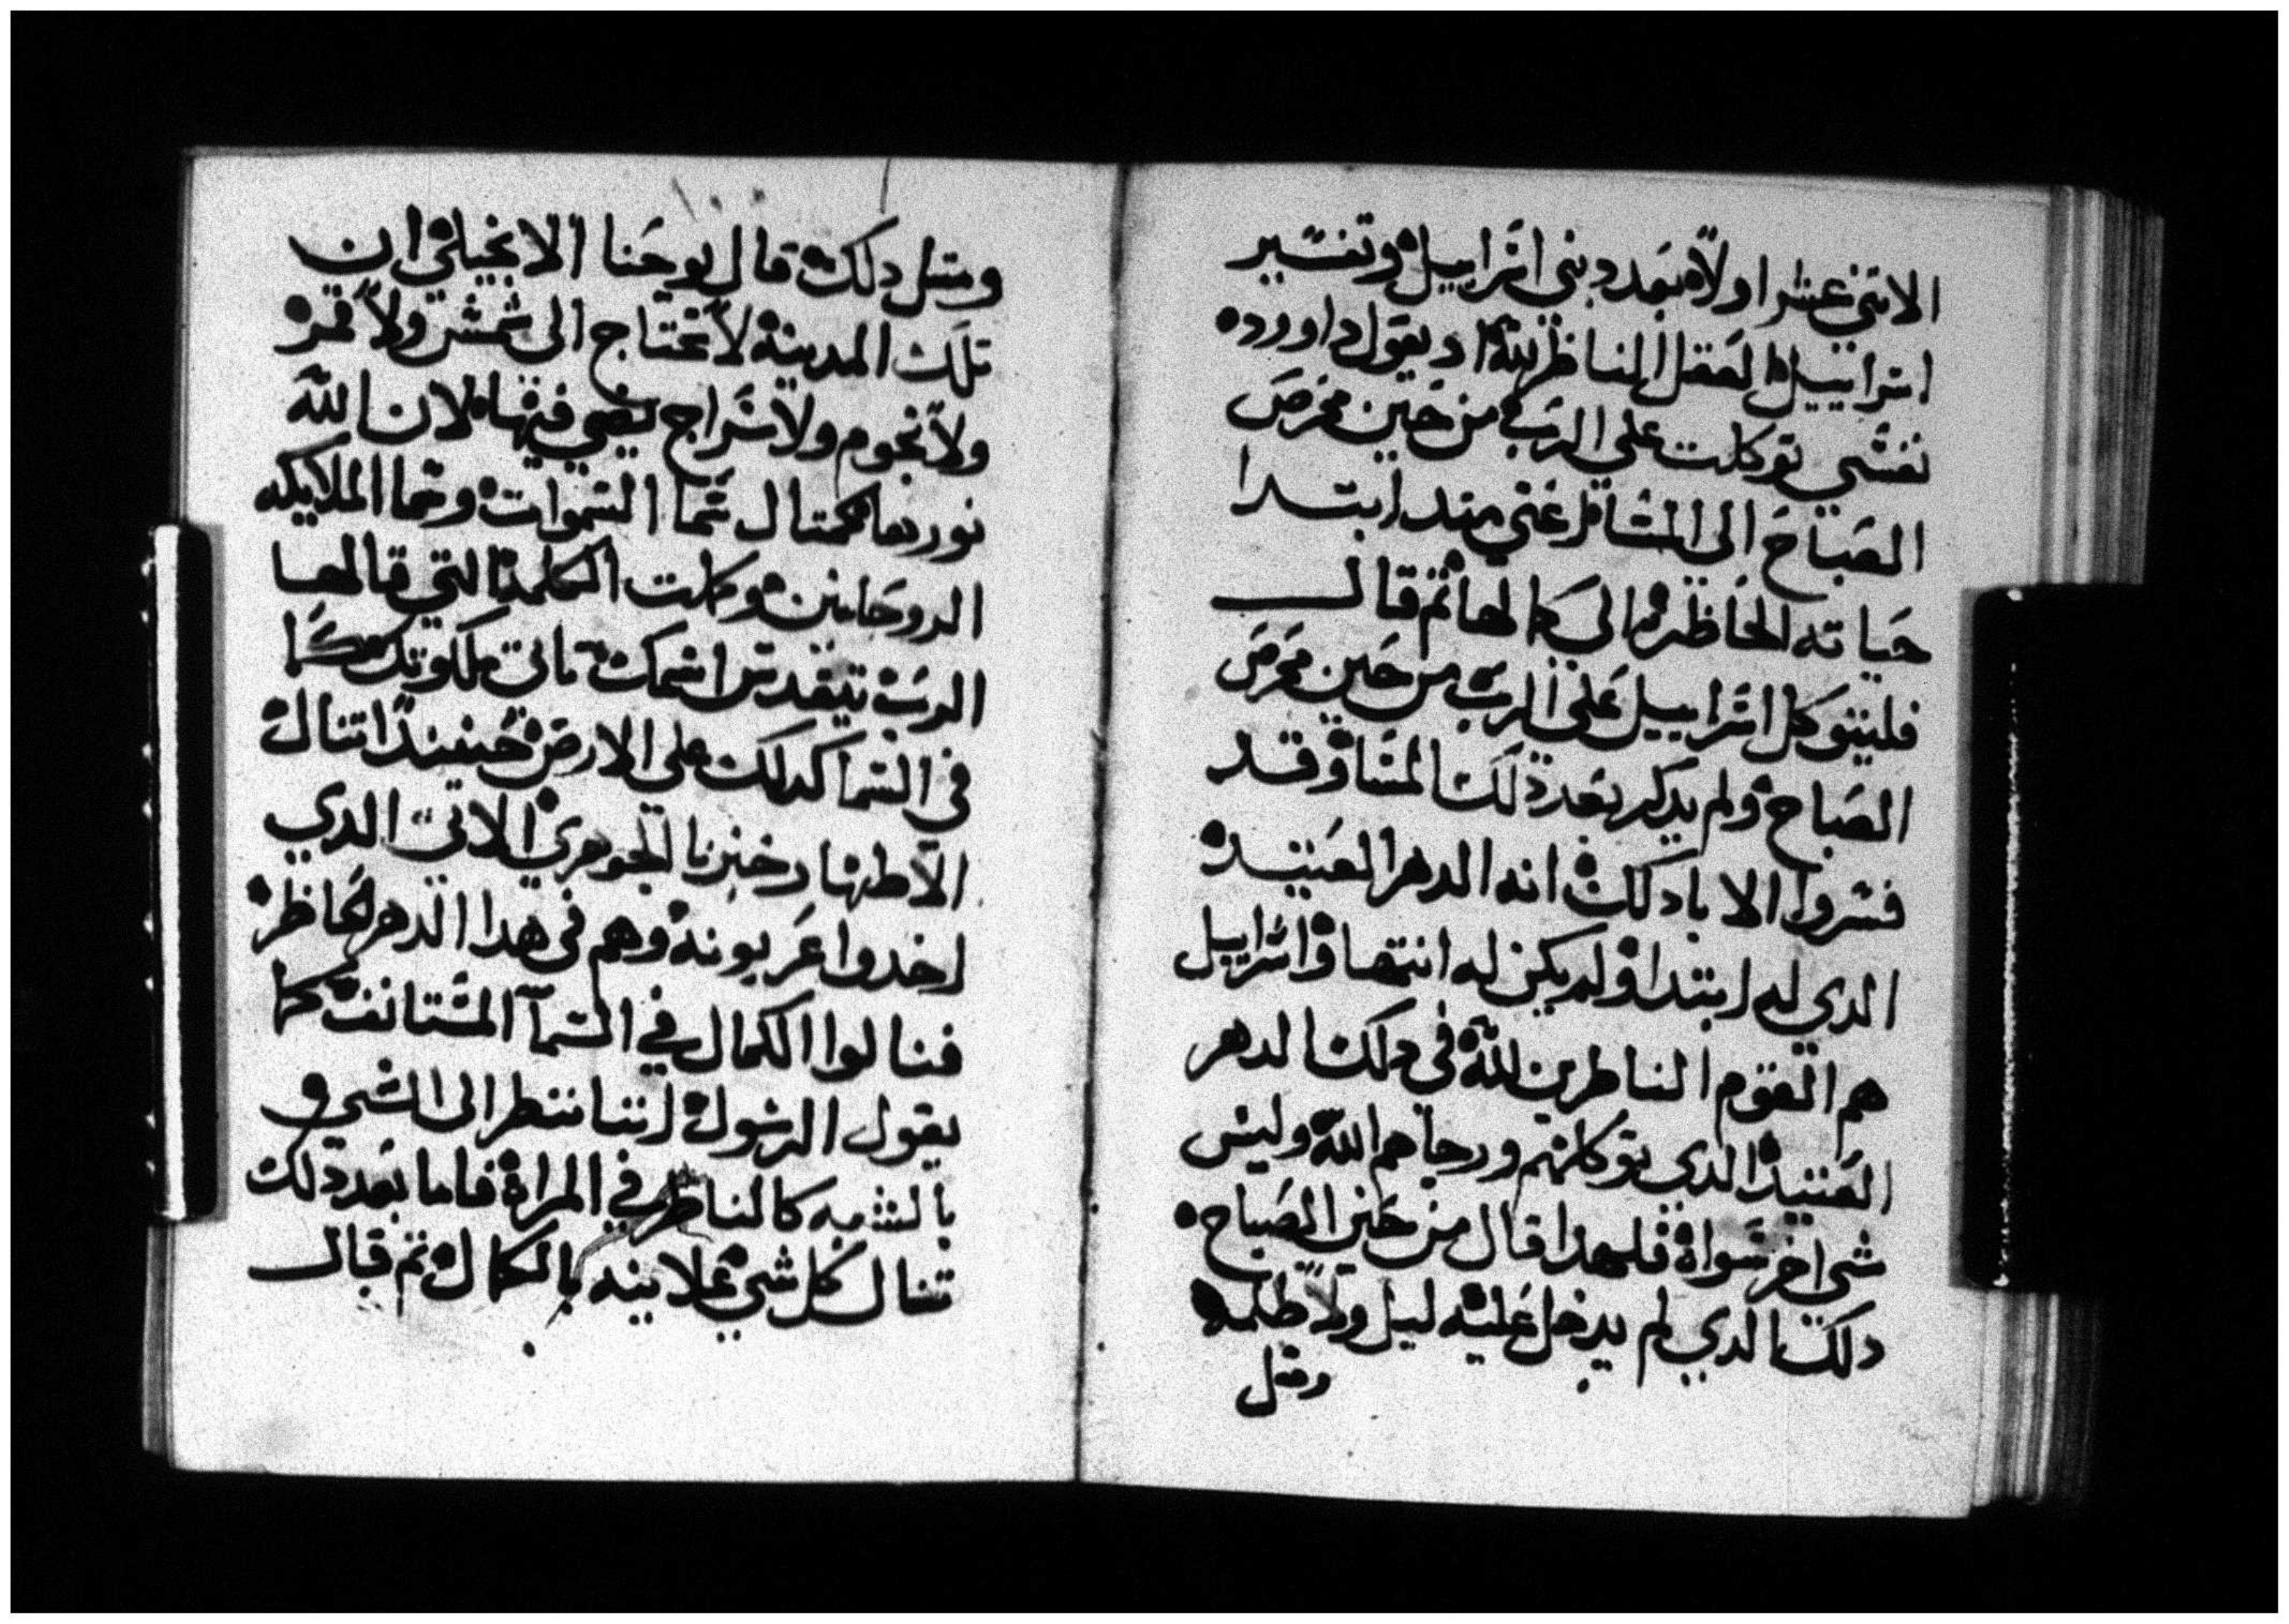 الاتني عشر اولاه بعدد بني اسراييل وتفسير
اسراييل العقل الناظر لله اد يقول داوود
نفسي توكلت علي الرب من حين محرص
الصباح الى المسا يعني مند ابتدا
حياته الحاظره الى كمالها تم قال
فليتوكل اسراييل علي الرب من حين محرص
الصباح ولم يدكر بعد دلك المسا وقد
فسروا الابا دلك انه الدهر العتيد
الدي له ابتدا ولم يكن له انتها واسراييل
هم القوم الناظرين لله في دلك الدهر
العتيد الدي توكلهم ورجاهم الله وليس
شي اخر سواه فلهدا قال من حين الصباح
دلك الدي لم يدخل عليه ليل ولا ظلمه
ومتل
ومتل دلك قال يوحنا الانجيلي ان
تلك المدينه لا تحتاج الى شمس ولا قمر
ولا نجوم ولا سراج يضي فيها لان الله
نورها كمتال سما السموات وسما الملايكه
الروحانين وكملت الكلمه التي قالها
الرب تيقدس اسمك تاتي ملكوتك كما
في السما كدلك على الارض حينيد اتنال
الاطهار خبزنا الجوهري الاتي الدي
اخدوا عربونه وهم في هدا الدهر الحاظر
فنالوا الكمال في السمآ المستانف كما
يقول الرسول اننا ننظر الى الشي و
بالشبه كالناظر في المراه فاما بعد دلك
تنال كل شي علانيه بالكمال تم قال